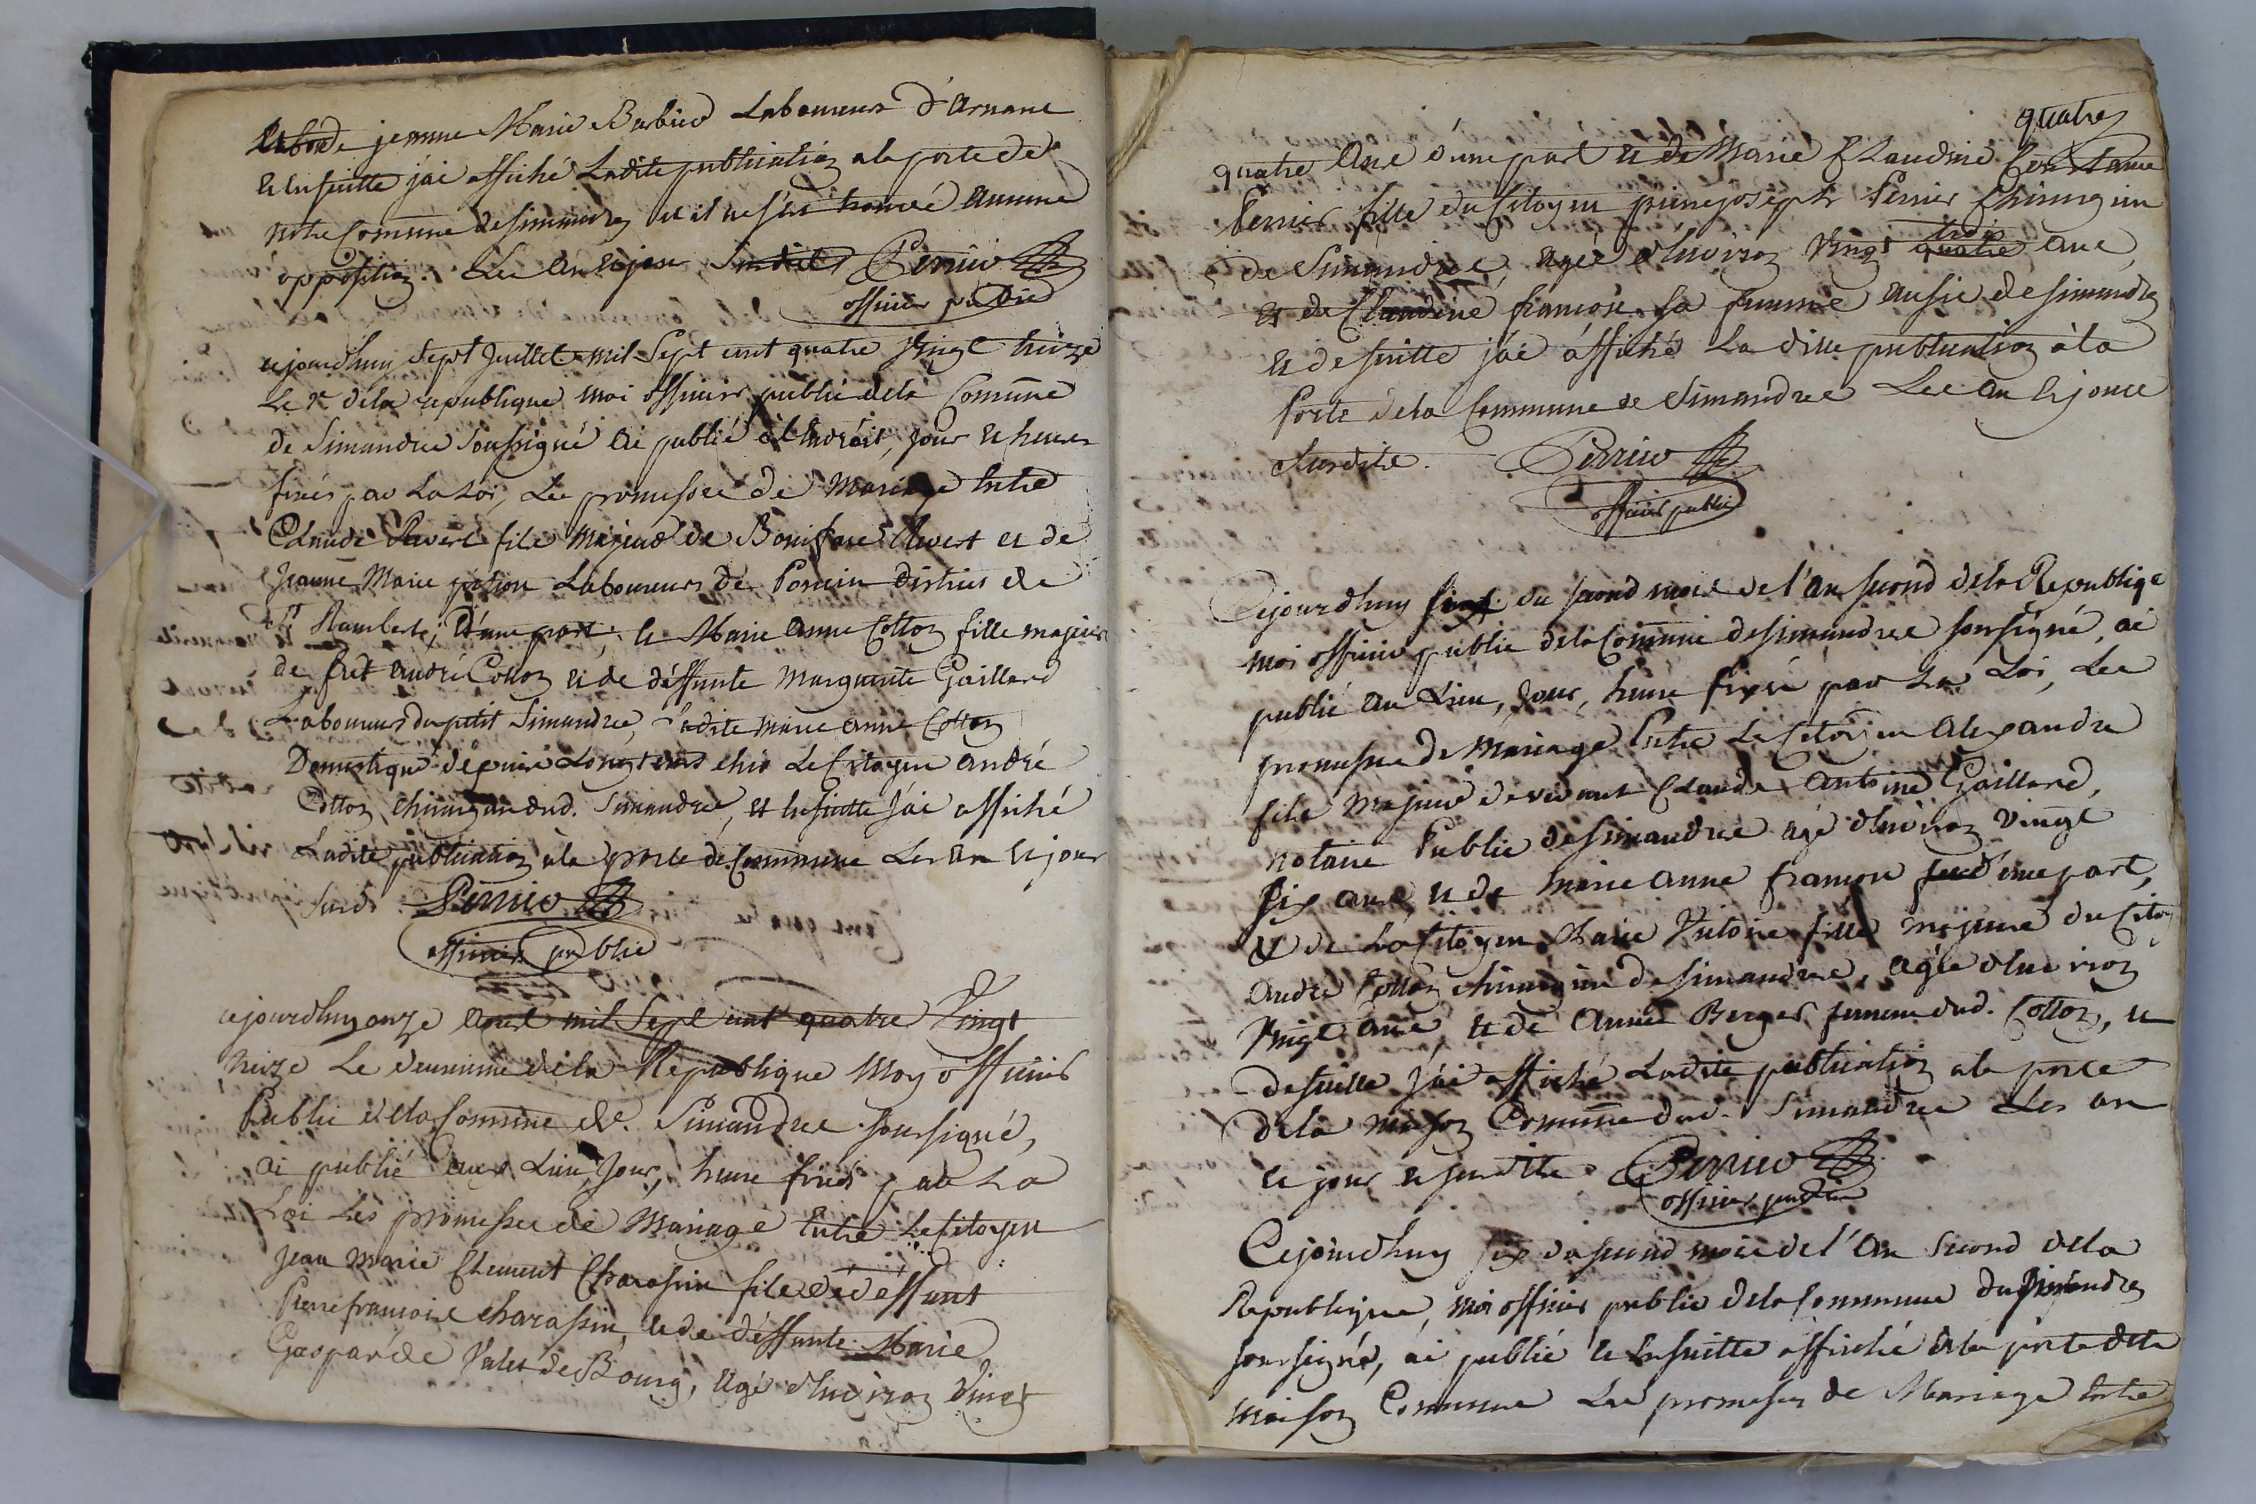 et de jeanne Marie Barbier Laboureurs d'Arnans
et ensuitte j'ai affiché Ladite publication a la porte de
notre Commune de simandre et il ne s'est trouvé aucune
opposition. Les an et jour susdits Perrier
officier public
cejourdhuy sept Juillet mil Sept cent quatre vingt treize
Le 2e de la republique moi officier public de la Commune
de Simandre soussigné ai publié a l'Endroit, jour et heure
fixés par La Loi, Les promesses de Mariage Entre
Claude Revert fils majeur de Boniface Revert et de
Jeanne Marie Laboureurs de Poncin District de
St Rambert, d'une part; et Marie Anne Cotton fille majeure
de feu André Cotton et de deffunte Marguerite Gaillard
Laboureurs du petit Simandre, Ladite marie anne Cotton
Domestique depuis Longtems chés Le Citoyen André
Cotton chirurgien dud. Simandre, et Ensuitte J'ai affiché
Ladite publication a la porte de Commune Les An et jour
susds Perrier
officier public
cejourdhuy onze mil Sept cent quatre Vingt
treize Le deuxieme de la Republique Moy officier
Public de la Commune de Simandre soussigné,
ai publié aux Lieu, Jour, heure fixés par La
Loi Les promesses de Mariage Entre Le Citoyen
Jean Marie Clement Charassin fils de deffunt
Pierre francois charassin, et de deffunte Marie
Gasparde de Bourg, agé d'Environ Vingt
quatre
quatre Ans d'une part et de Marie Claudine Constance
Perrier fille du Citoyen pierre joseph Perrier Chirurgien
trois
de Simandre, agée d'Environ Vingt quatre ans,
et de Claudine francoise sa femme aussi de simandre
et de suitte j'ai affiché La dite publication à la
Porte de la Commune de Simandre Les An et jour
Susdits. Perrier
officier public
Cejourdhuy du second mois de l'an second de la Republiqe
moi officier public de la Commune de simandre soussigné, ai
publié au Lieu, Jour, heure fixés par La Loi, Les
promesses de Mariage Entre Le Citoien Alexandre
fils Majeur de vivant Claude Antoine Gaillard,
notaire Public de simandre agé d'Environ Vingt
six ans, et de marie anne d'une part,
et de La Citoyen Marie Victoire fille majeure du Citoy
André Cotton chirurgien de simandre, agée d'Environ
Vingt ans, et de Anne Berger femme dud. Cotton, et
de suitte J'ai affiché Ladite publication a la porte
de la maison Commune dud. Simandre Les an
et jour Perrier
officier public
Cejourdhuy six du second mois de l'An second de la
Republique, moi officier public de la Commune du Simandre
soussigné, ai publié et Ensuitte affiché a la porte de la
maison Commune Les promesses de Mariage Entre